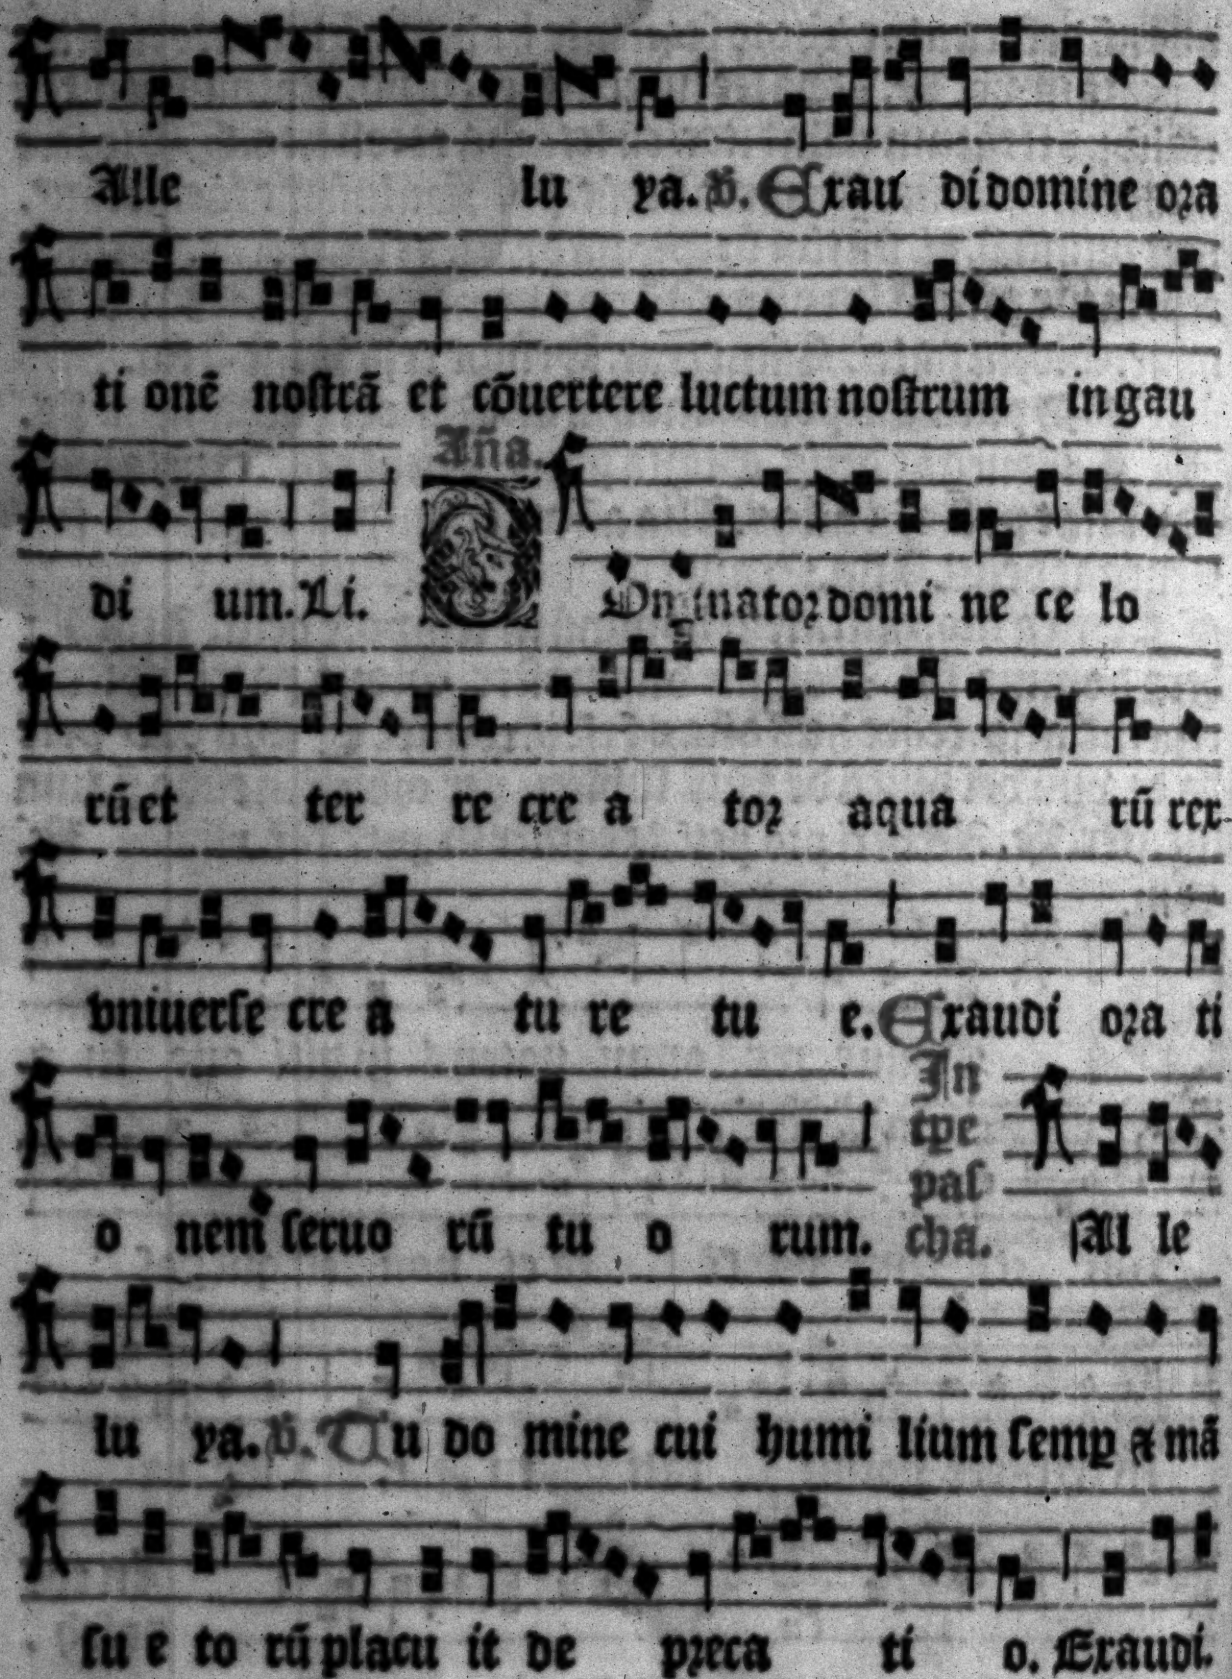 Alle lu ya. ℣. Exau di domine ora
ti onē nostrā et cōuertere luctum nostrum in gau
Aña.
di um. Li. Domina tor domi ne ce lo
rū et ter re cre a tor aqua rū rex
vniuerse cre a tu re tu e. Exaudi ora ti
In tpe pas cha.
o nem seruo rū tu o rum. Al le
lu ya. ℣. Tu do mine cui humi lium semp & mā
su e to rū placu it de preca ti o. Exaudi.